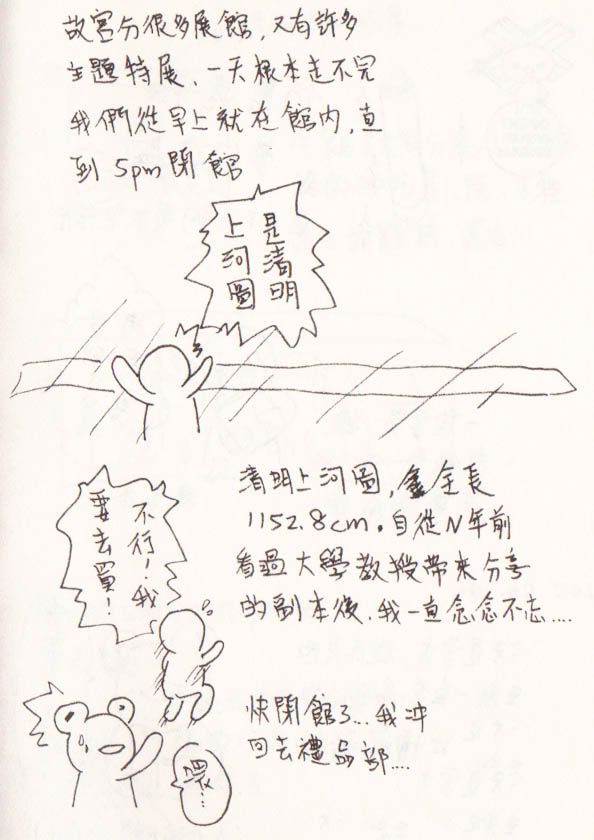 故宮分很多展館，又有許多
主題特展、一天根本走不完
我們從早上就在館內，直
到 5pm 閉館
是清明
上河圖
清明上河圖，全長
1152.8cm。自從N年前
看過大學教授帶來分享
的副本後，我一直念念不忘....
不行！我
要去買！
快閉館了...我沖
回去禮品部....
喂...